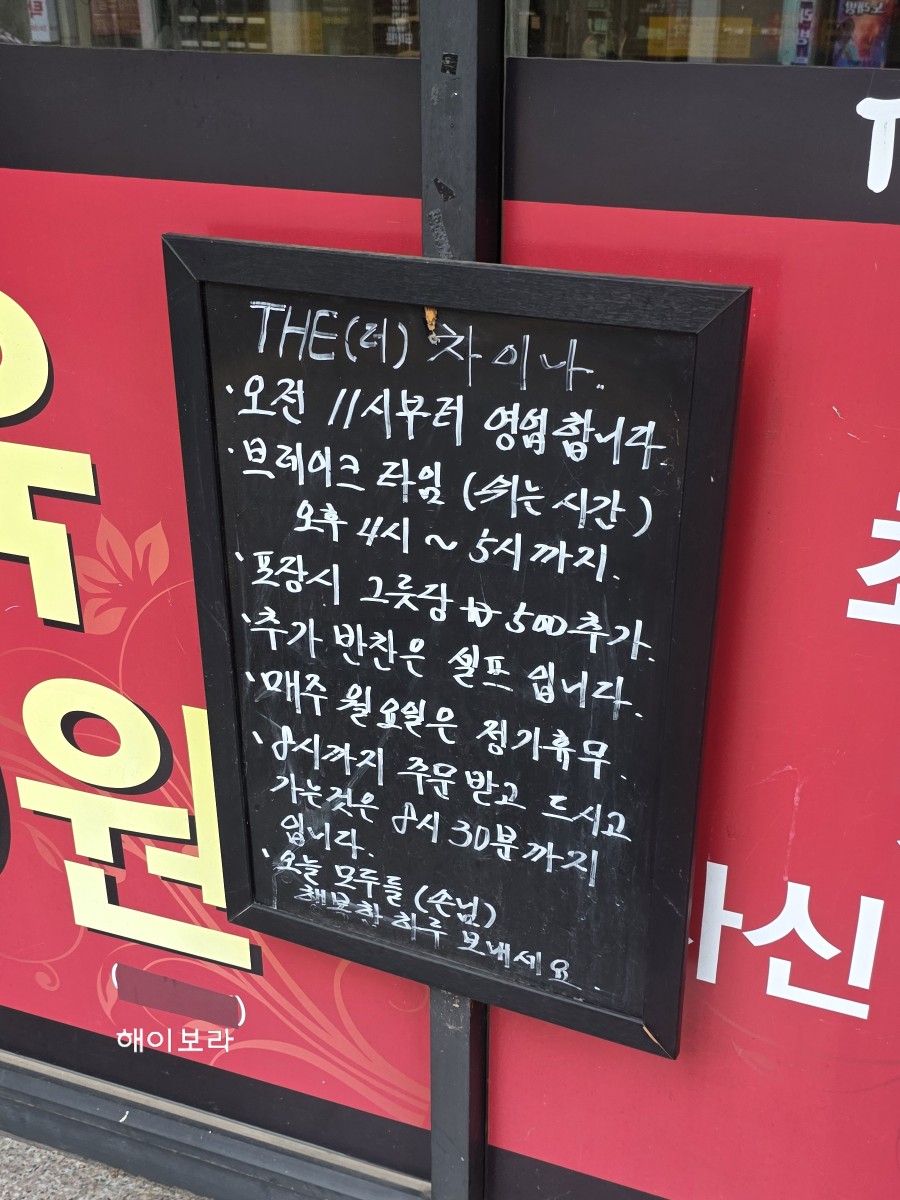 THE(더) 차이나..
· 오전 11시부터 영업합니다.
· 브레이크 타임 (쉬는 시간)
오후 4시 ~ 5시까지.
· 포장시 그릇당 ₩500추가.
· 추가 반찬은 셀프 입니다.
· 매주 월요일은 정기휴무.
· 8시까지 주문받고 드시고
가는것은 8시30분까지
입니다.
· 오늘 모두들 (손님)
행복한 하루 보내세요
원
신
해이보라